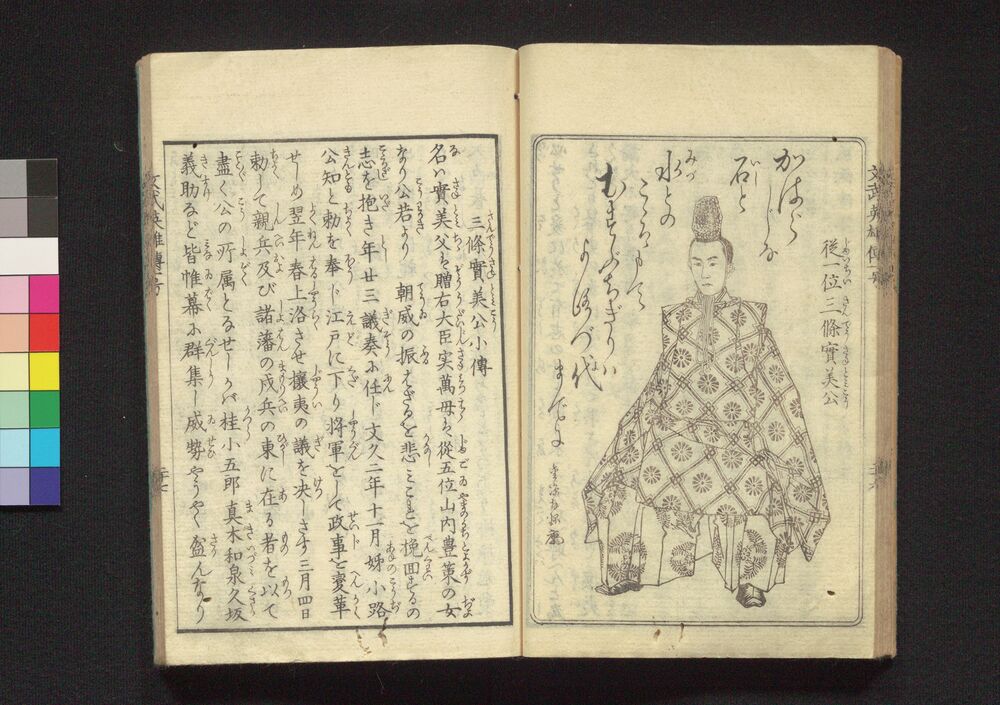 從一位三條實美公
かはらじな
石と
水との
こゝろもて
むすぶちぎりハ
よろづ代
までよ
三條實美公小傳
名ハ實美父を贈右大臣実萬母を從五位山内豊策の女
なり公若より朝威の振はざるを悲ミこれを挽回するの
志を抱き年廿三議奏に任ド文久二年十一月姊小路
公知と勅を奉ド江戸に下り將軍をして政事を変革
せしめ翌年春上洛させ攘夷の議を決しさす三月四日
勅して親兵及び諸藩の戍兵の東に在る者を以て
盡く公の所属となせしかバ桂小五郎真木和泉久坂
義助など皆惟幕に群集し威勢やうやく盛んなり
文武英雄傳一号